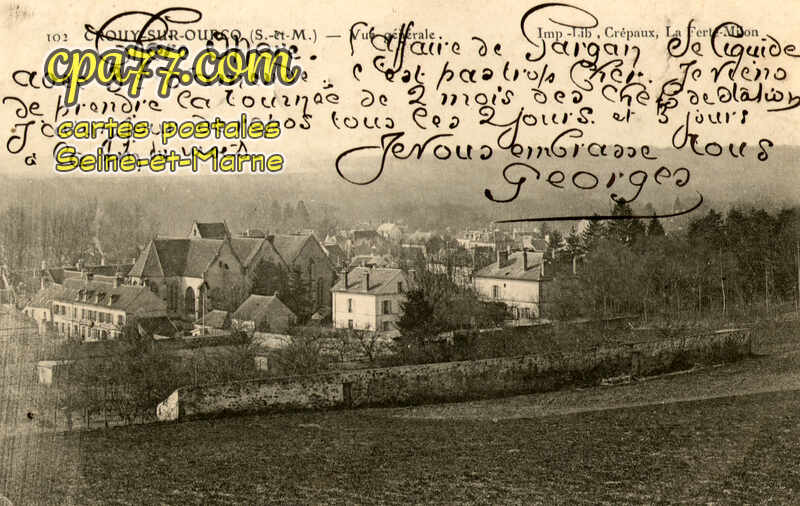 102 CROUY-SUR-OURCQ (S.-et-M.) — Vue générale. Imp.-Lib. Crépaux, La Ferté-Milon
l'affaire de Gargan se liquide
c'est pas trop cher. Je viens
de prendre la tournée de 2 mois des chefs de station
J' repos tous les 2 jours. et 3 jours
à
Je vous embrasse tous
Georges
cpa77.com
cartes postales
Seine-et-Marne